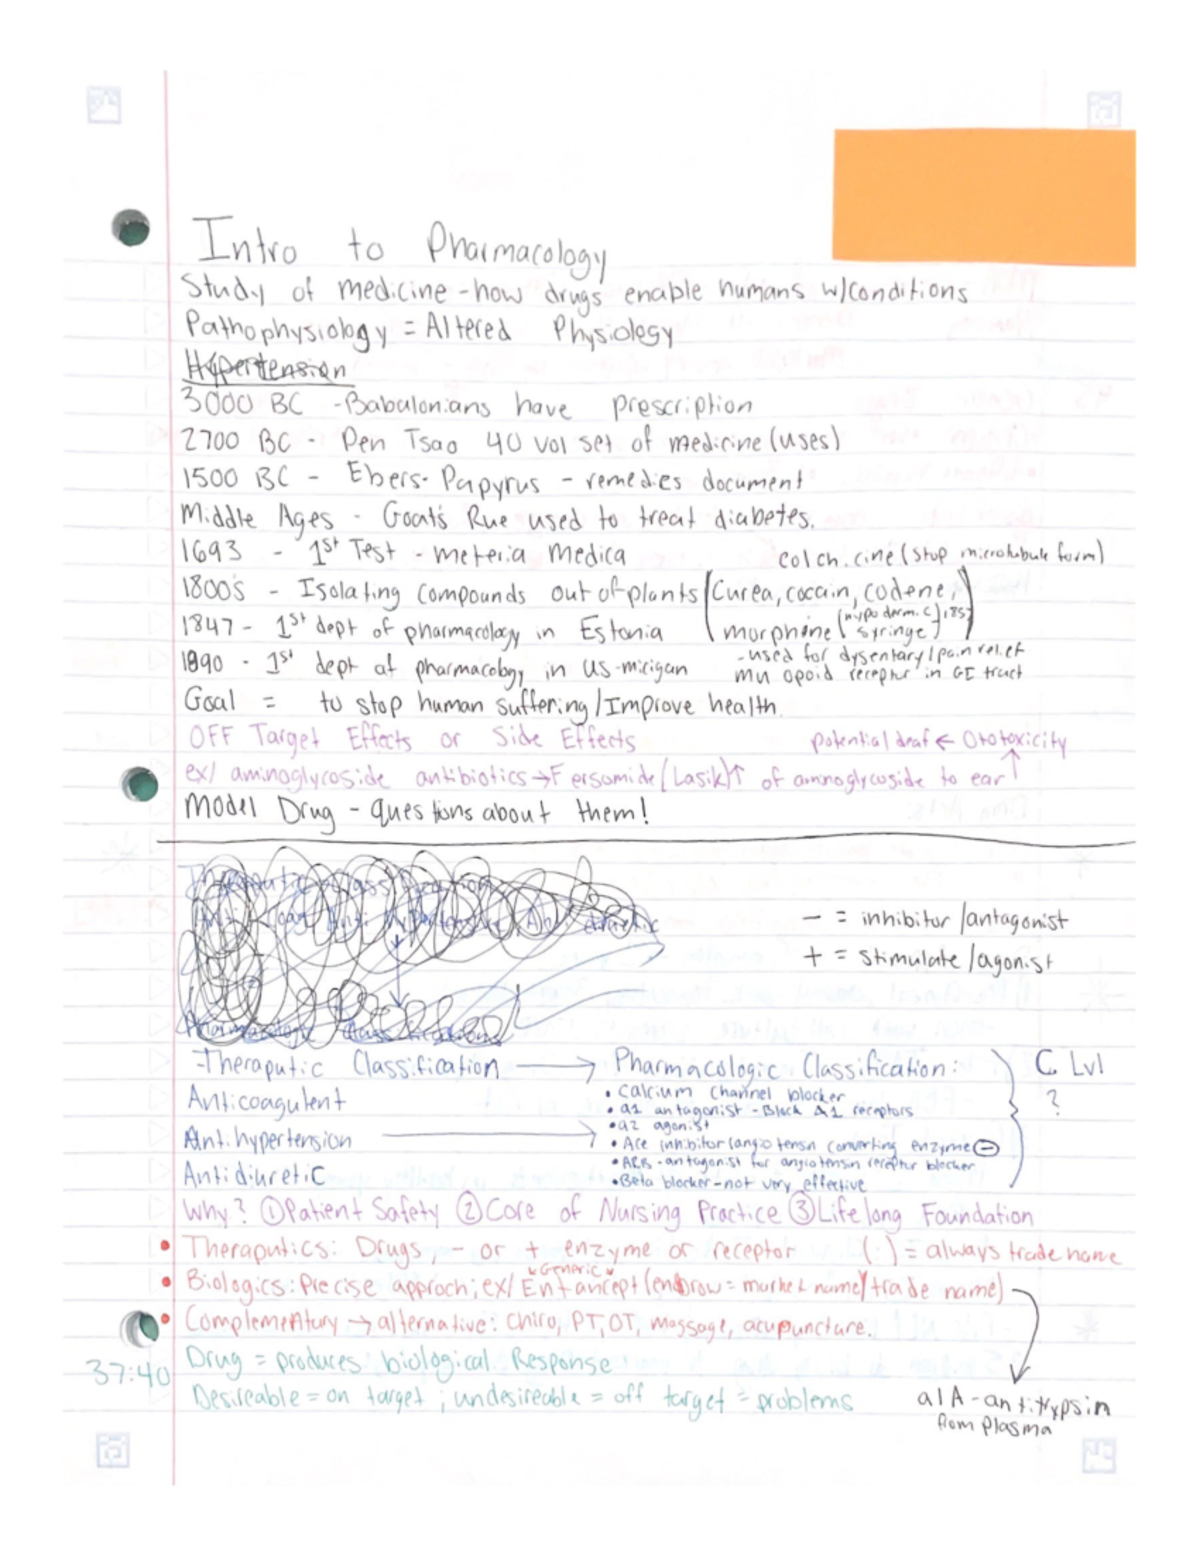 Intro to Pharmacology
Study of medicine - how drugs enable humans w/conditions
Pathophysiology = Altered Physiology
Hypertension
3000 BC - Babalonians have prescription
2700 BC - Pen Tsao 40 vol set of medicine (uses)
1500 BC - Ebers-Papyrus - remedies document
Middle Ages - Goat's Rue used to treat diabetes.
1693 - 1st Test - meteria Medica
colchicine (stop microtubule form)
1800's - Isolating compounds out of plants (Curea, cocain, codene,
morphine (hypodermic syringe) 1857)
1847 - 1st dept of pharmacology in Estonia
- used for dysentary/pain relief
mu opoid receptor in GI truct
1890 - 1st dept of pharmacology in US-mirigan
Goal = to stop human suffering/Improve health.
OFF Target Effects or Side Effects
potential deaf ← Ototoxicity
ex/ aminoglycoside antibiotics → Fersomide (Lasik) ↑ of aminoglycoside to ear ↑
Model Drug - questions about them!
- = inhibitor/antagonist
+ = stimulate/agonist
- Theraputic Classification → Pharmacologic Classification:
C. Lvl
?
• Calcium Channel blocker
Anticoagulent
• a1 antagonist - Block A1 receptors
• a2 agonist
Antihypertension →
• Ace inhibitor (angiotensn converting enzyme ⊖
• ARB - antagonist for angiotensin receptur blocker
Antidiuretic
• Beta blocker - not very effective
Why? ① Patient Safety ② Core of Nursing Practice ③ Lifelong Foundation
• Theraputics: Drugs, - or + enzyme or receptor ( ) = always trade name
Generic
• Biologics: Precise approch; ex/ Entancept (enbrow = market name/trade name)
• Complementary → alternative: chiro, PT, OT, massage, acupuncture.
37:40
Drug = produces biological Response
Desireable = on target; undesireable = off target = problems
a1A-antitrypsin
from plasma